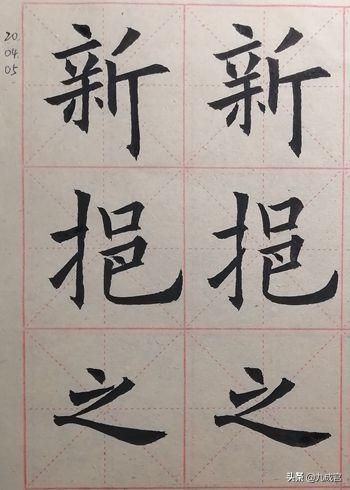 新挹之
新挹之
20.
04.
05
头条 @九成宫